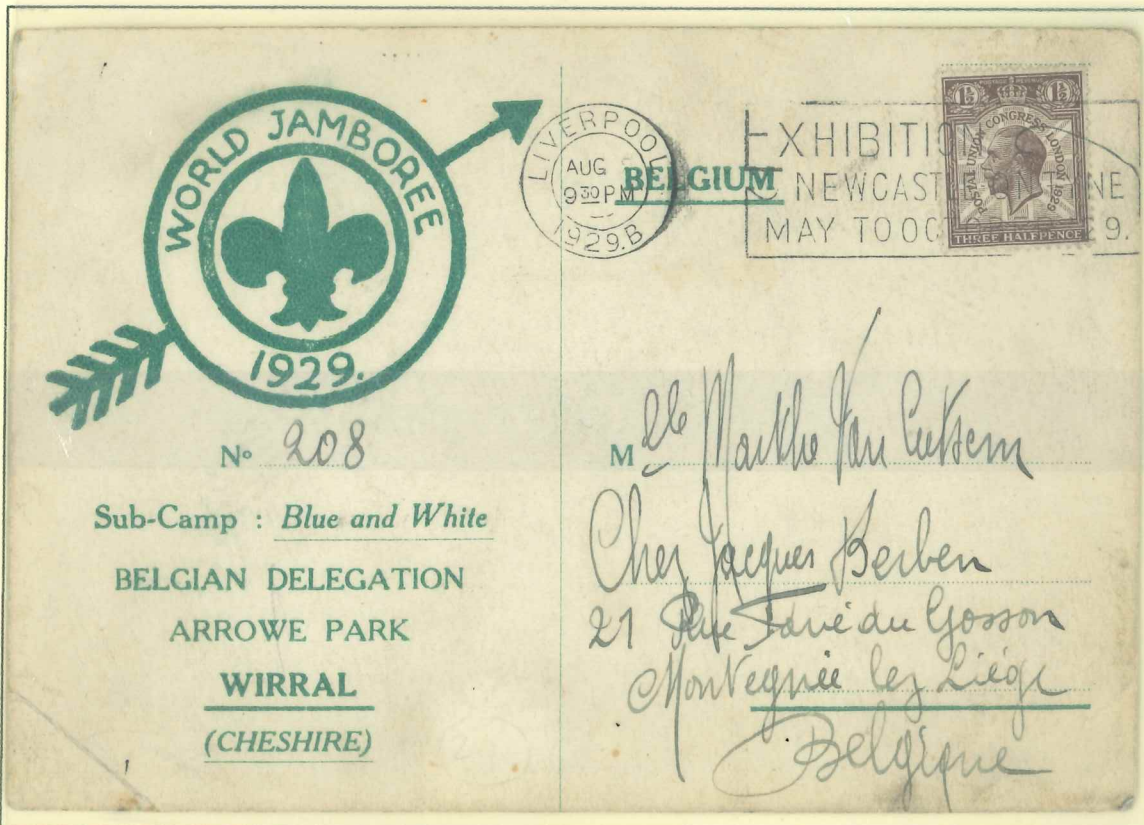 WORLD JAMBOREE
1929.
Nº 208
Sub-Camp : Blue and White
BELGIAN DELEGATION
ARROWE PARK
WIRRAL
(CHESHIRE)
LIVERPOOL
AUG
9 30 PM
1929.B
BELGIUM
EXHIBITION
NEWCAST NE
MAY TO OC 9.
1½ 1½
POSTAL UNION CONGRESS LONDON 1929
THREE HALFPENCE
Mlle Marthe Van Cutsem
Chez Jacques Berben
21 Rue du Gosson
Montegnée lez Liége
Belgique